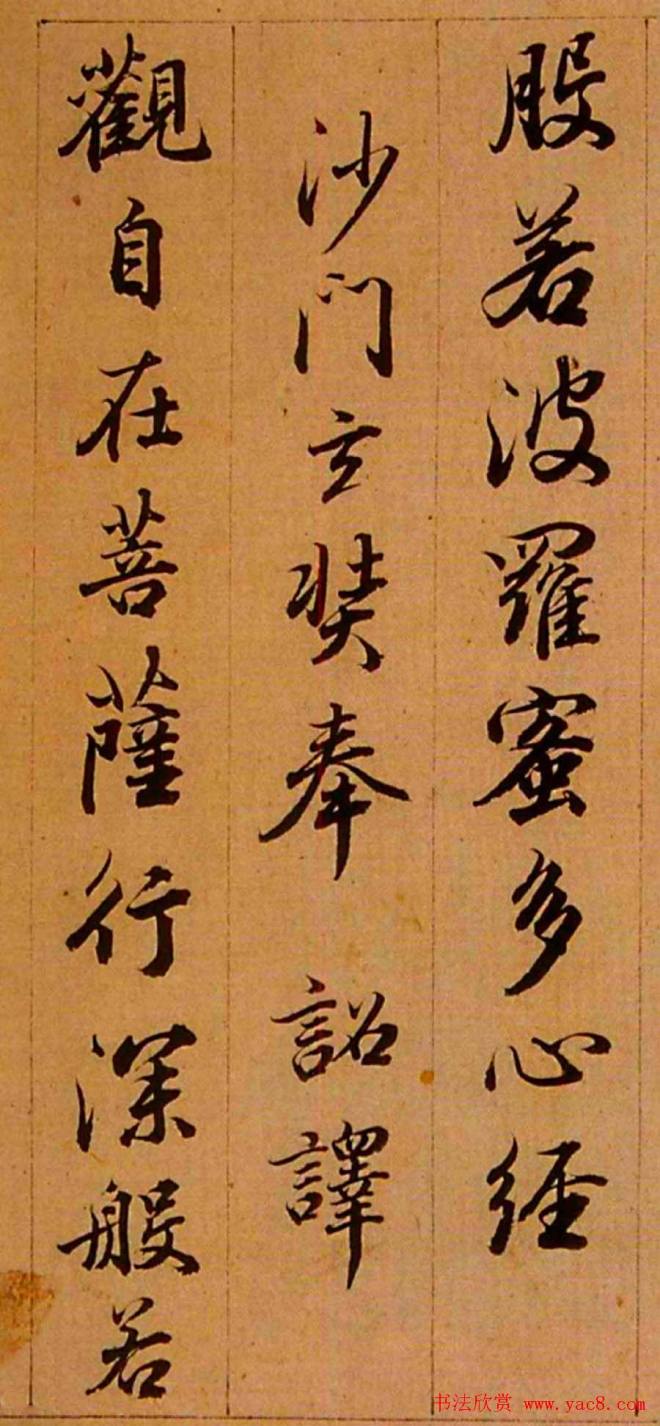 般若波羅蜜多心経
沙門玄奘奉 詔譯
觀自在菩薩行深般若
书法欣赏 www.yac8.com